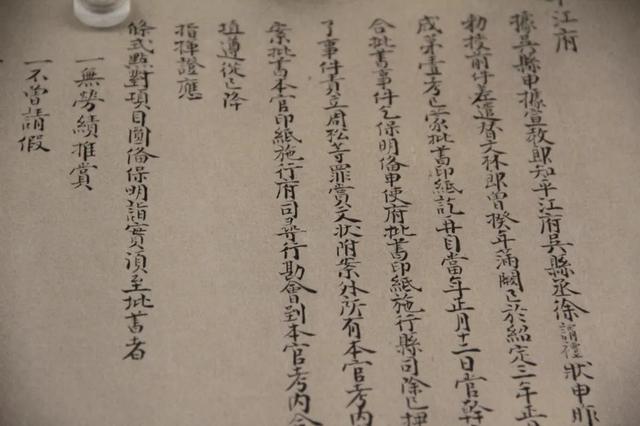 平江府
據吳縣申據宣教郎知平江府吳縣丞徐謂禮狀申昨
勑授前件差遣替文林郎曾揆年滿闕已於紹定三年正
成第壹考已家批書印紙訖再自當年正月十二日管幹
合批書事件乞保明備申使府批書印紙施行縣司除已押
了事件責立周松等罪賞文狀附案外所有本官考內
案批書本官印紙施行府司尋行勘會到本官考內合
填遵從已降
指揮證應
條式點對項目圓備保明詣實須至批書者
一無勞績推賞
一不曾請假